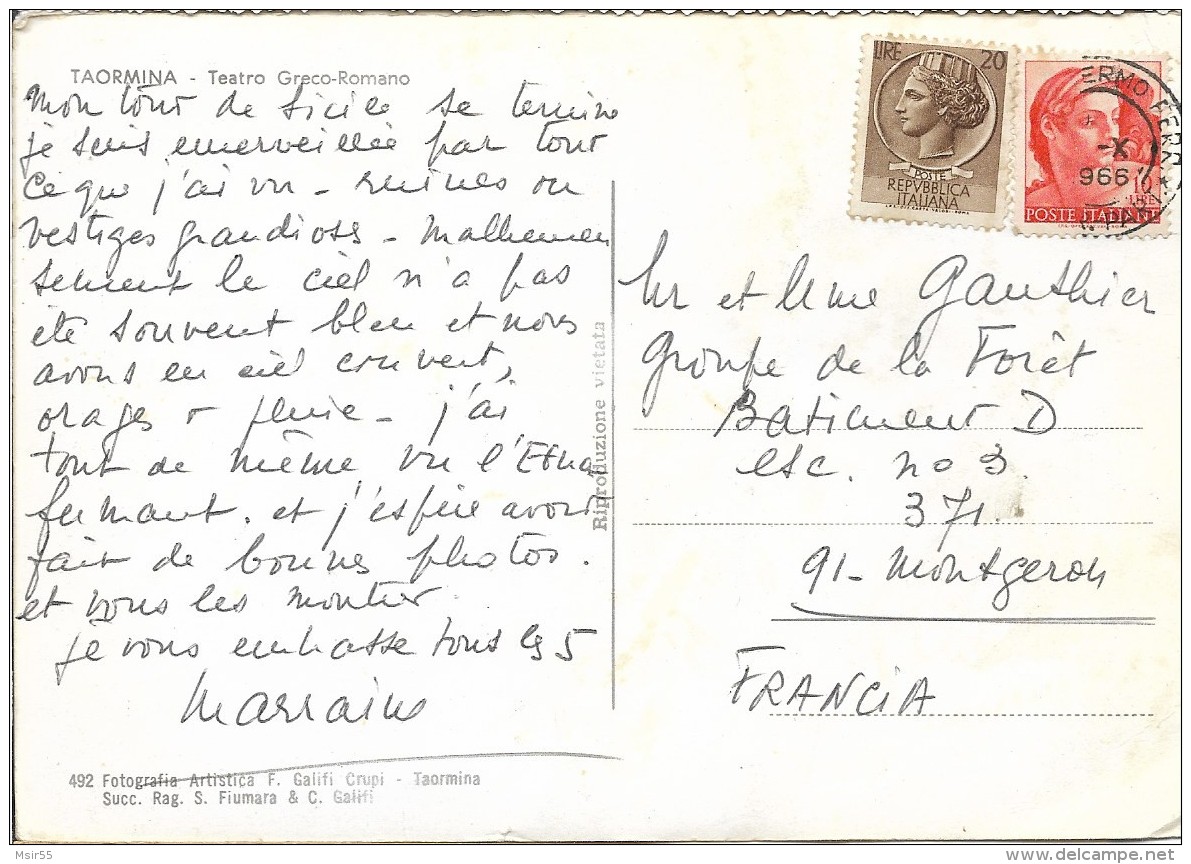 TAORMINA - Teatro Greco-Romano
Mon tour de Sicile se termine
je suis emerveillée par tout
ce que j'ai vu - ruines ou
vestiges grandioses - Malheureu
sement le ciel n'a pas
été souvent bleu et nous
avons eu ciel couvert,
orages & pluie - j'ai
tout de même vu l'Etna
fumant. et j'espère avoir
fait de bonnes photos.
et vous les montrer.
je vous embrasse tous les 5
Marraine
492 Fotografia Artistica F. Galifi Crupi - Taormina
Succ. Rag. S. Fiumara & C. Galifi
Riproduzione vietata
LIRE 20
POSTE
REPVBBLICA
ITALIANA
I.P.S. OFF. CARTE VALORI - ROMA
10
LIRE
POSTE ITALIANE
ERMO FERR
-X
966
Mr et Mme Gauthier
Groupe de la Forêt
Batiment D
esc. no 3
371.
91- Montgeron
FRANCIA
Msir55
delcampe.net